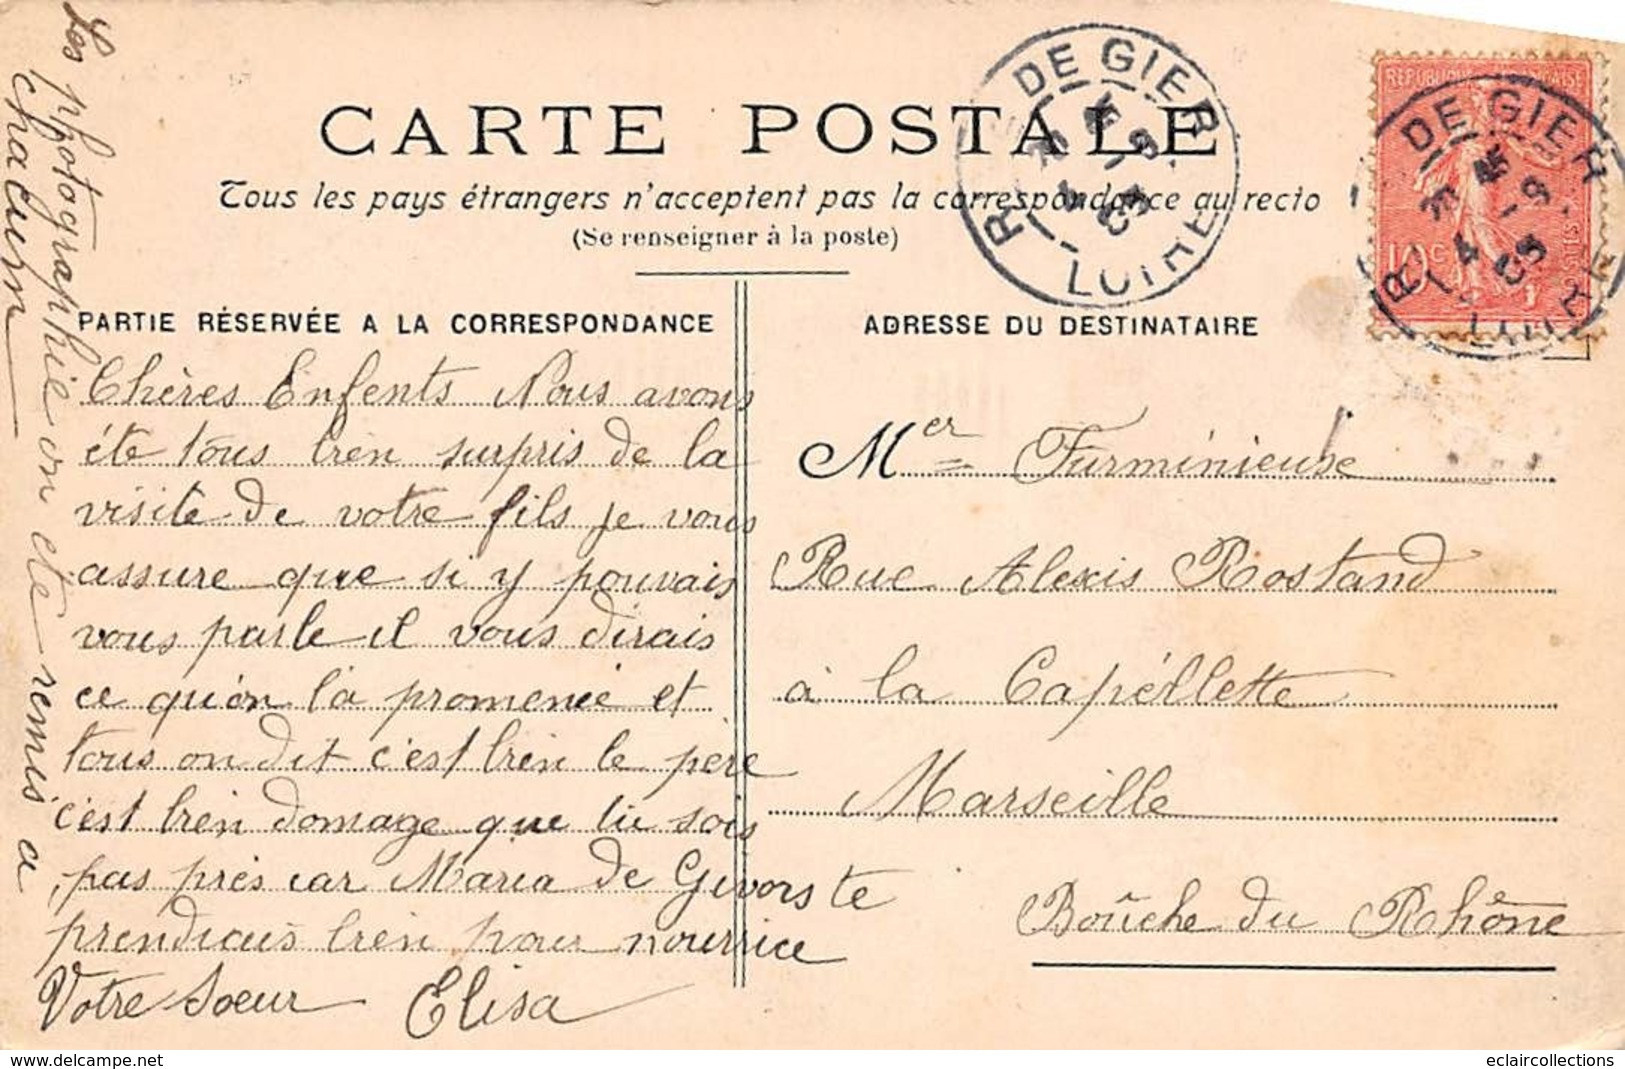 CARTE POSTALE
Tous les pays étrangers n'acceptent pas la correspondance au recto
(Se renseigner à la poste)
PARTIE RÉSERVÉE A LA CORRESPONDANCE
Chères Enfents Nous avons
éte tous bien surpris de la
visite de votre fils je vous
assure que si y pouvais
vous parle il vous dirais
ce qu'on l'a promenée et
tous on dit c'est bien le père
c'est bien domage que tu sois
pas près car Maria de Givors te
prendrais bien pour nourrice
Votre Soeur Elisa
Les photographie on ete remis a
chacun
ADRESSE DU DESTINATAIRE
Mer Furminieuse
Rue Alexis Rostand
à la Capéllette
Marseille
Boûche du Rhône
R. DE GIER
LOIRE
RÉPUBLIQUE FRANÇAISE
10c
POSTES
R. DE GIER
LOIRE
www.delcampe.net
eclaircollections